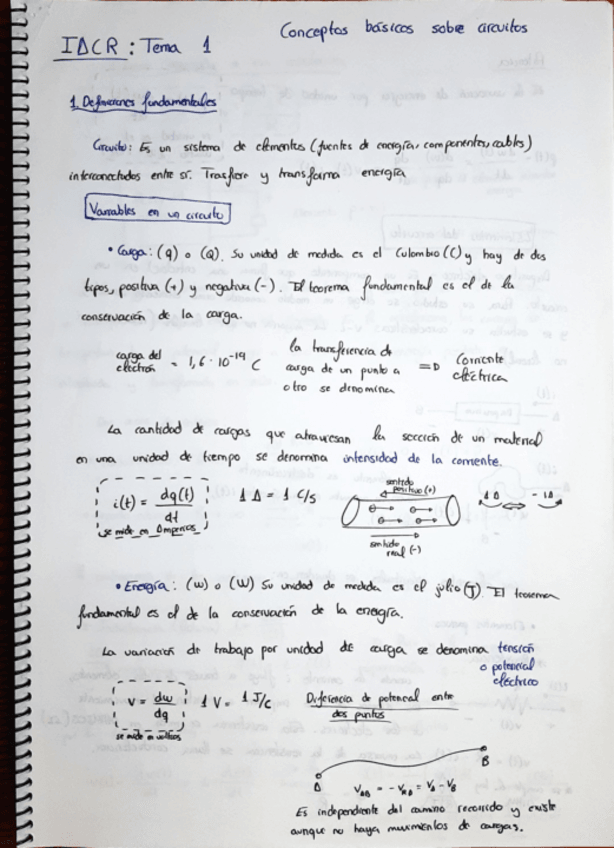 Conceptos básicos sobre circuitos
IACR : Tema 1
1. Definiciones fundamentales
Circuito: Es un sistema de elementos (fuentes de energía, componentes, cables)
interconectados entre sí. Trasfiere y transforma energía
Variables en un circuito
• Carga: (q) o (Q). Su unidad de medida es el Culombio (C) y hay de dos
tipos, positiva (+) y negativa (-). El teorema fundamental es el de la
conservación de la carga.
carga del electrón = 1,6 · 10⁻¹⁹ C
la transferencia de
carga de un punto a
otro se denomina
=D Corriente eléctrica
La cantidad de cargas que atraviesan la sección de un material
en una unidad de tiempo se denomina intensidad de la corriente.
i(t) = dq(t)/dt
se mide en Amperios
1 A = 1 C/s
sentido
positivo (+)
sentido
real (-)
1 A ⇔ -1A
• Energía: (w) o (W) Su unidad de medida es el julio (J). El teorema
fundamental es el de la conservación de la energía.
La variación de trabajo por unidad de carga se denomina tensión
o potencial
eléctrico
v = dw/dq
se mide en voltios
1 V = 1 J/C
Diferencia de potencial entre
dos puntos
A
B
V_AB = - V_BA = V_A - V_B
Es independiente del camino recorrido y existe
aunque no haya movimientos de cargas.